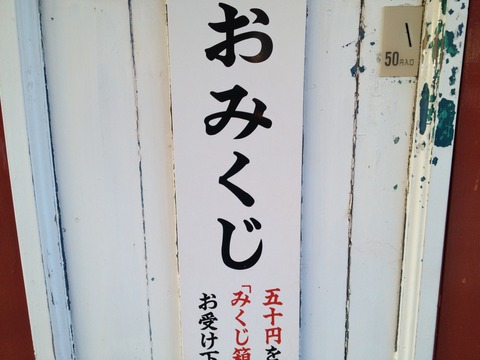 おみくじ
五十円を
「みくじ箱
お受け下
50円入口